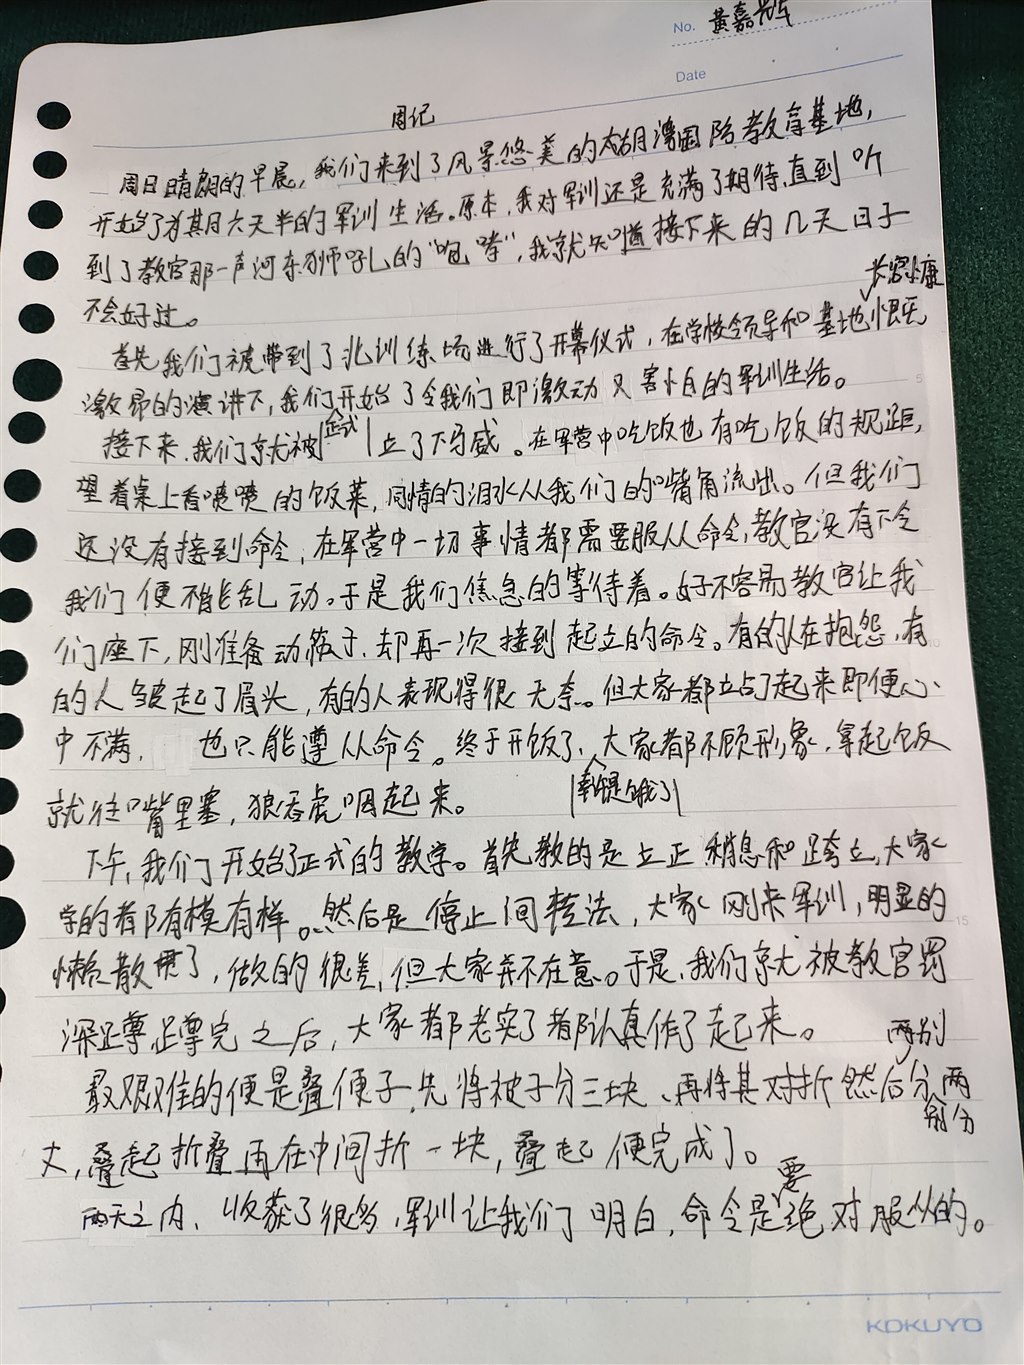 No. 黄嘉
Date
周记
周日晴朗的早晨，我们来到了风景悠美的太湖湾国防教育基地，
开始了为其月六天半的军训生活。原本，我对军训还是充满了期待，直到听
到了教官那一声河东狮吼的"咆哮"，我就知道接下来的几天日子
不会好过。
首先，我们被带到了北训练场进行了开幕仪式，在学校领导和基地
激昂的演讲下，我们开始了令我们即激动又害怕的军训生活。
接下来，我们就被正式立了下马威。在军营中吃饭也有吃饭的规距，
望着桌上香喷喷的饭菜，同情的泪水从我们的嘴角流出。但我们
还没有接到命令，在军营中一切事情都需要服从命令，教官没有下令
我们便不能乱动。于是我们焦急的等待着。好不容易教官让我
们座下，刚准备动筷子，却再一次接到起立的命令。有的人在抱怨，有
的人皱起了眉头，有的人表现得很无奈。但大家都站了起来即便心
中不满，也只能遵从命令。终于开饭了，大家都不顾形象，拿起饭
就往嘴里塞，狼吞虎咽起来。
下午，我们开始了正式的教学。首先教的是立正稍息和跨立，大家
学的都有模有样。然后是停止间转法，大家刚来军训，明显的
懒散惯了，做的很差，但大家并不在意。于是，我们就被教官罚
深蹲，蹲完之后，大家都老实了都认真作了起来。
最艰难的便是叠便子，先将被子分三块、再将其对折然后分两
丈，叠起折叠再在中间折一块，叠起便完成了。
两天之内、收获了很多，军训让我们明白，命令是要绝对服从的。
5
10
15
KOKUYO